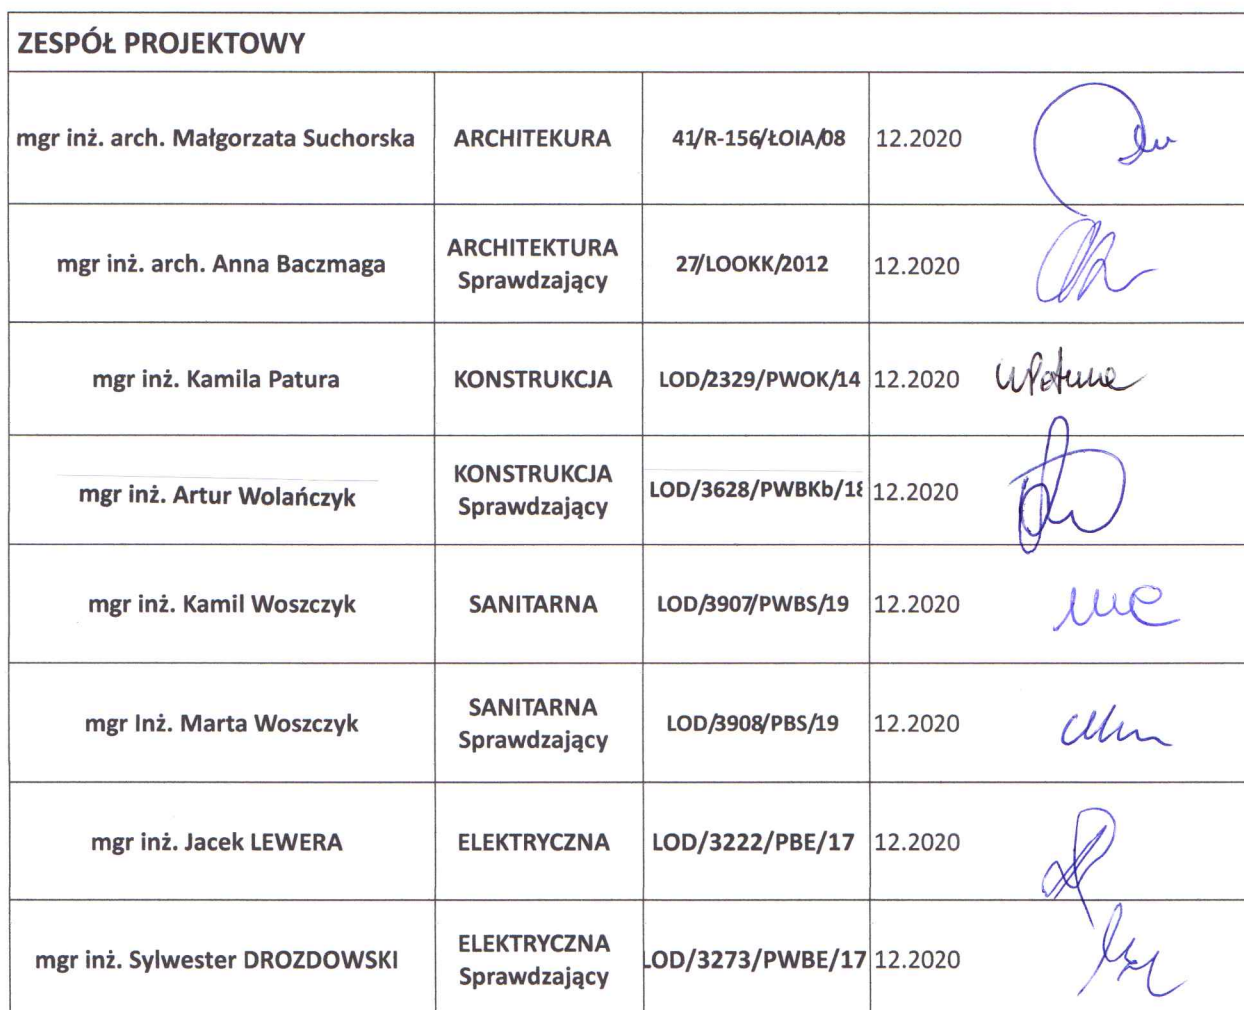 ZESPÓŁ PROJEKTOWY
mgr inż. arch. Małgorzata Suchorska ARCHITEKURA 41/R-156/ŁOIA/08 12.2020
mgr inż. arch. Anna Baczmaga ARCHITEKTURA Sprawdzający 27/LOOKK/2012 12.2020
mgr inż. Kamila Patura KONSTRUKCJA LOD/2329/PWOK/14 12.2020
mgr inż. Artur Wolańczyk KONSTRUKCJA Sprawdzający LOD/3628/PWBKb/18 12.2020
mgr inż. Kamil Woszczyk SANITARNA LOD/3907/PWBS/19 12.2020
mgr Inż. Marta Woszczyk SANITARNA Sprawdzający LOD/3908/PBS/19 12.2020
mgr inż. Jacek LEWERA ELEKTRYCZNA LOD/3222/PBE/17 12.2020
mgr inż. Sylwester DROZDOWSKI ELEKTRYCZNA Sprawdzający LOD/3273/PWBE/17 12.2020